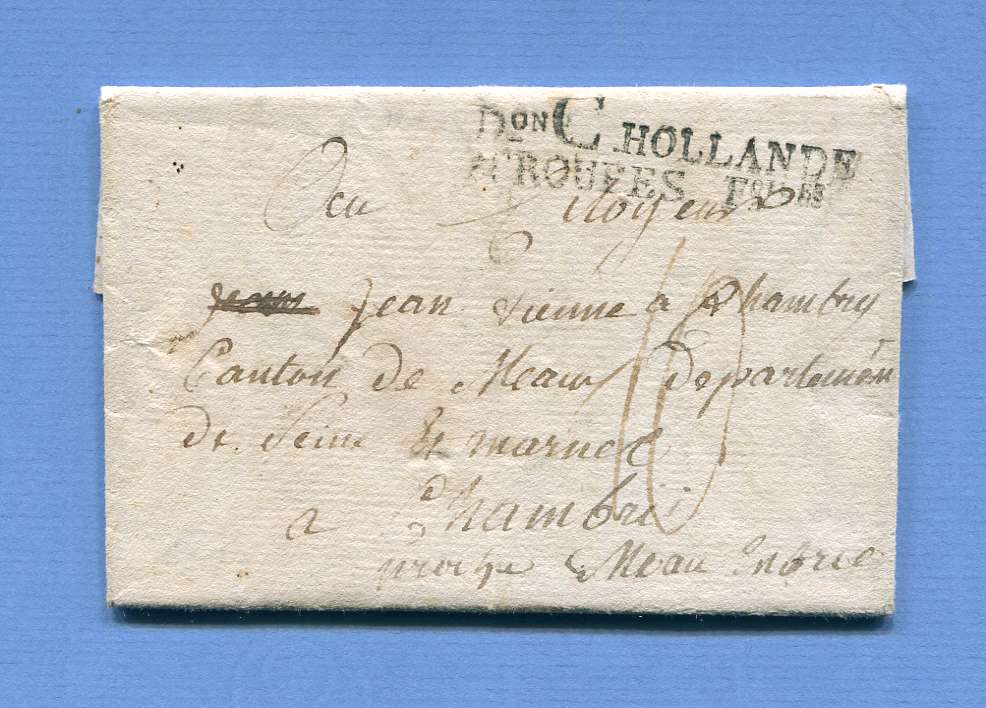 Don C. HOLLANDE
TROUPES
Citoyen
Jean vienne a Chambry
Canton de Meaux departemen
de Seine et marne
a Chambri
proche Meau